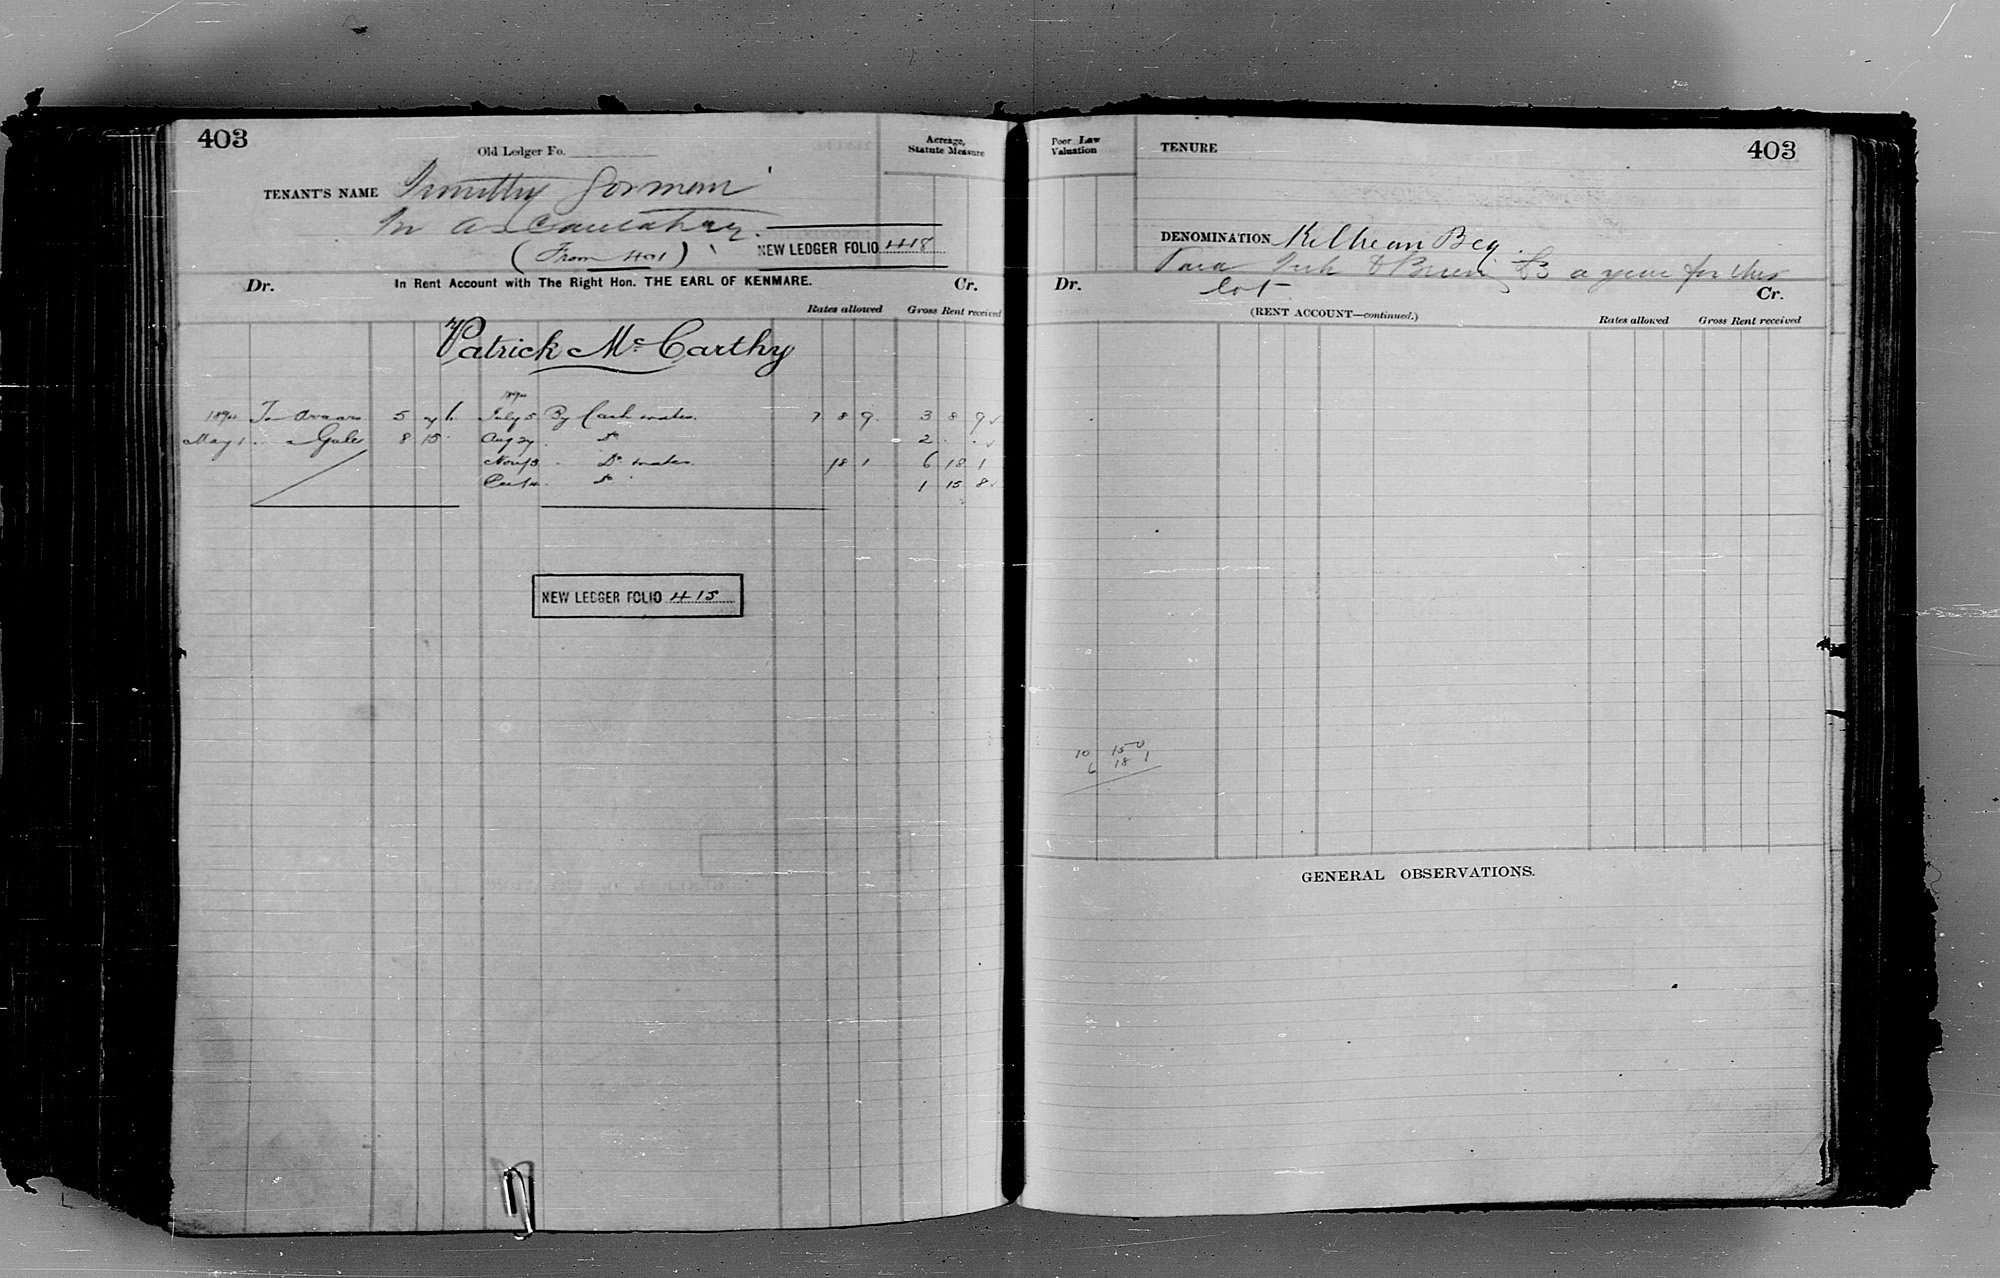 403
Old Ledger Fo.
Acreage,
Statute Measure
TENANT'S NAME Timothy Gorman
In as Caretaker.
(From 401)
NEW LEDGER FOLIO 418
Dr. In Rent Account with The Right Hon. THE EARL OF KENMARE. Cr.
Rates allowed Gross Rent received
Patrick Mc Carthy
1894
1894 To Arrears 5 7 6 July 5 By Cash rates. 7 8 9 3 8 9
May 1 Gale 8 15 Aug 27 Do 2 . .
Nov 13 Do rates. 18 1 6 18 1
Do 1 15 8
NEW LEDGER FOLIO 415
Poor Law
Valuation
TENURE
403
DENOMINATION Kilbrean Beg.
Paid O'Brien £3 a year for this
lot
Dr. Cr.
(RENT ACCOUNT—continued.)
Rates allowed Gross Rent received
10 15 0
6 18 1
GENERAL OBSERVATIONS.